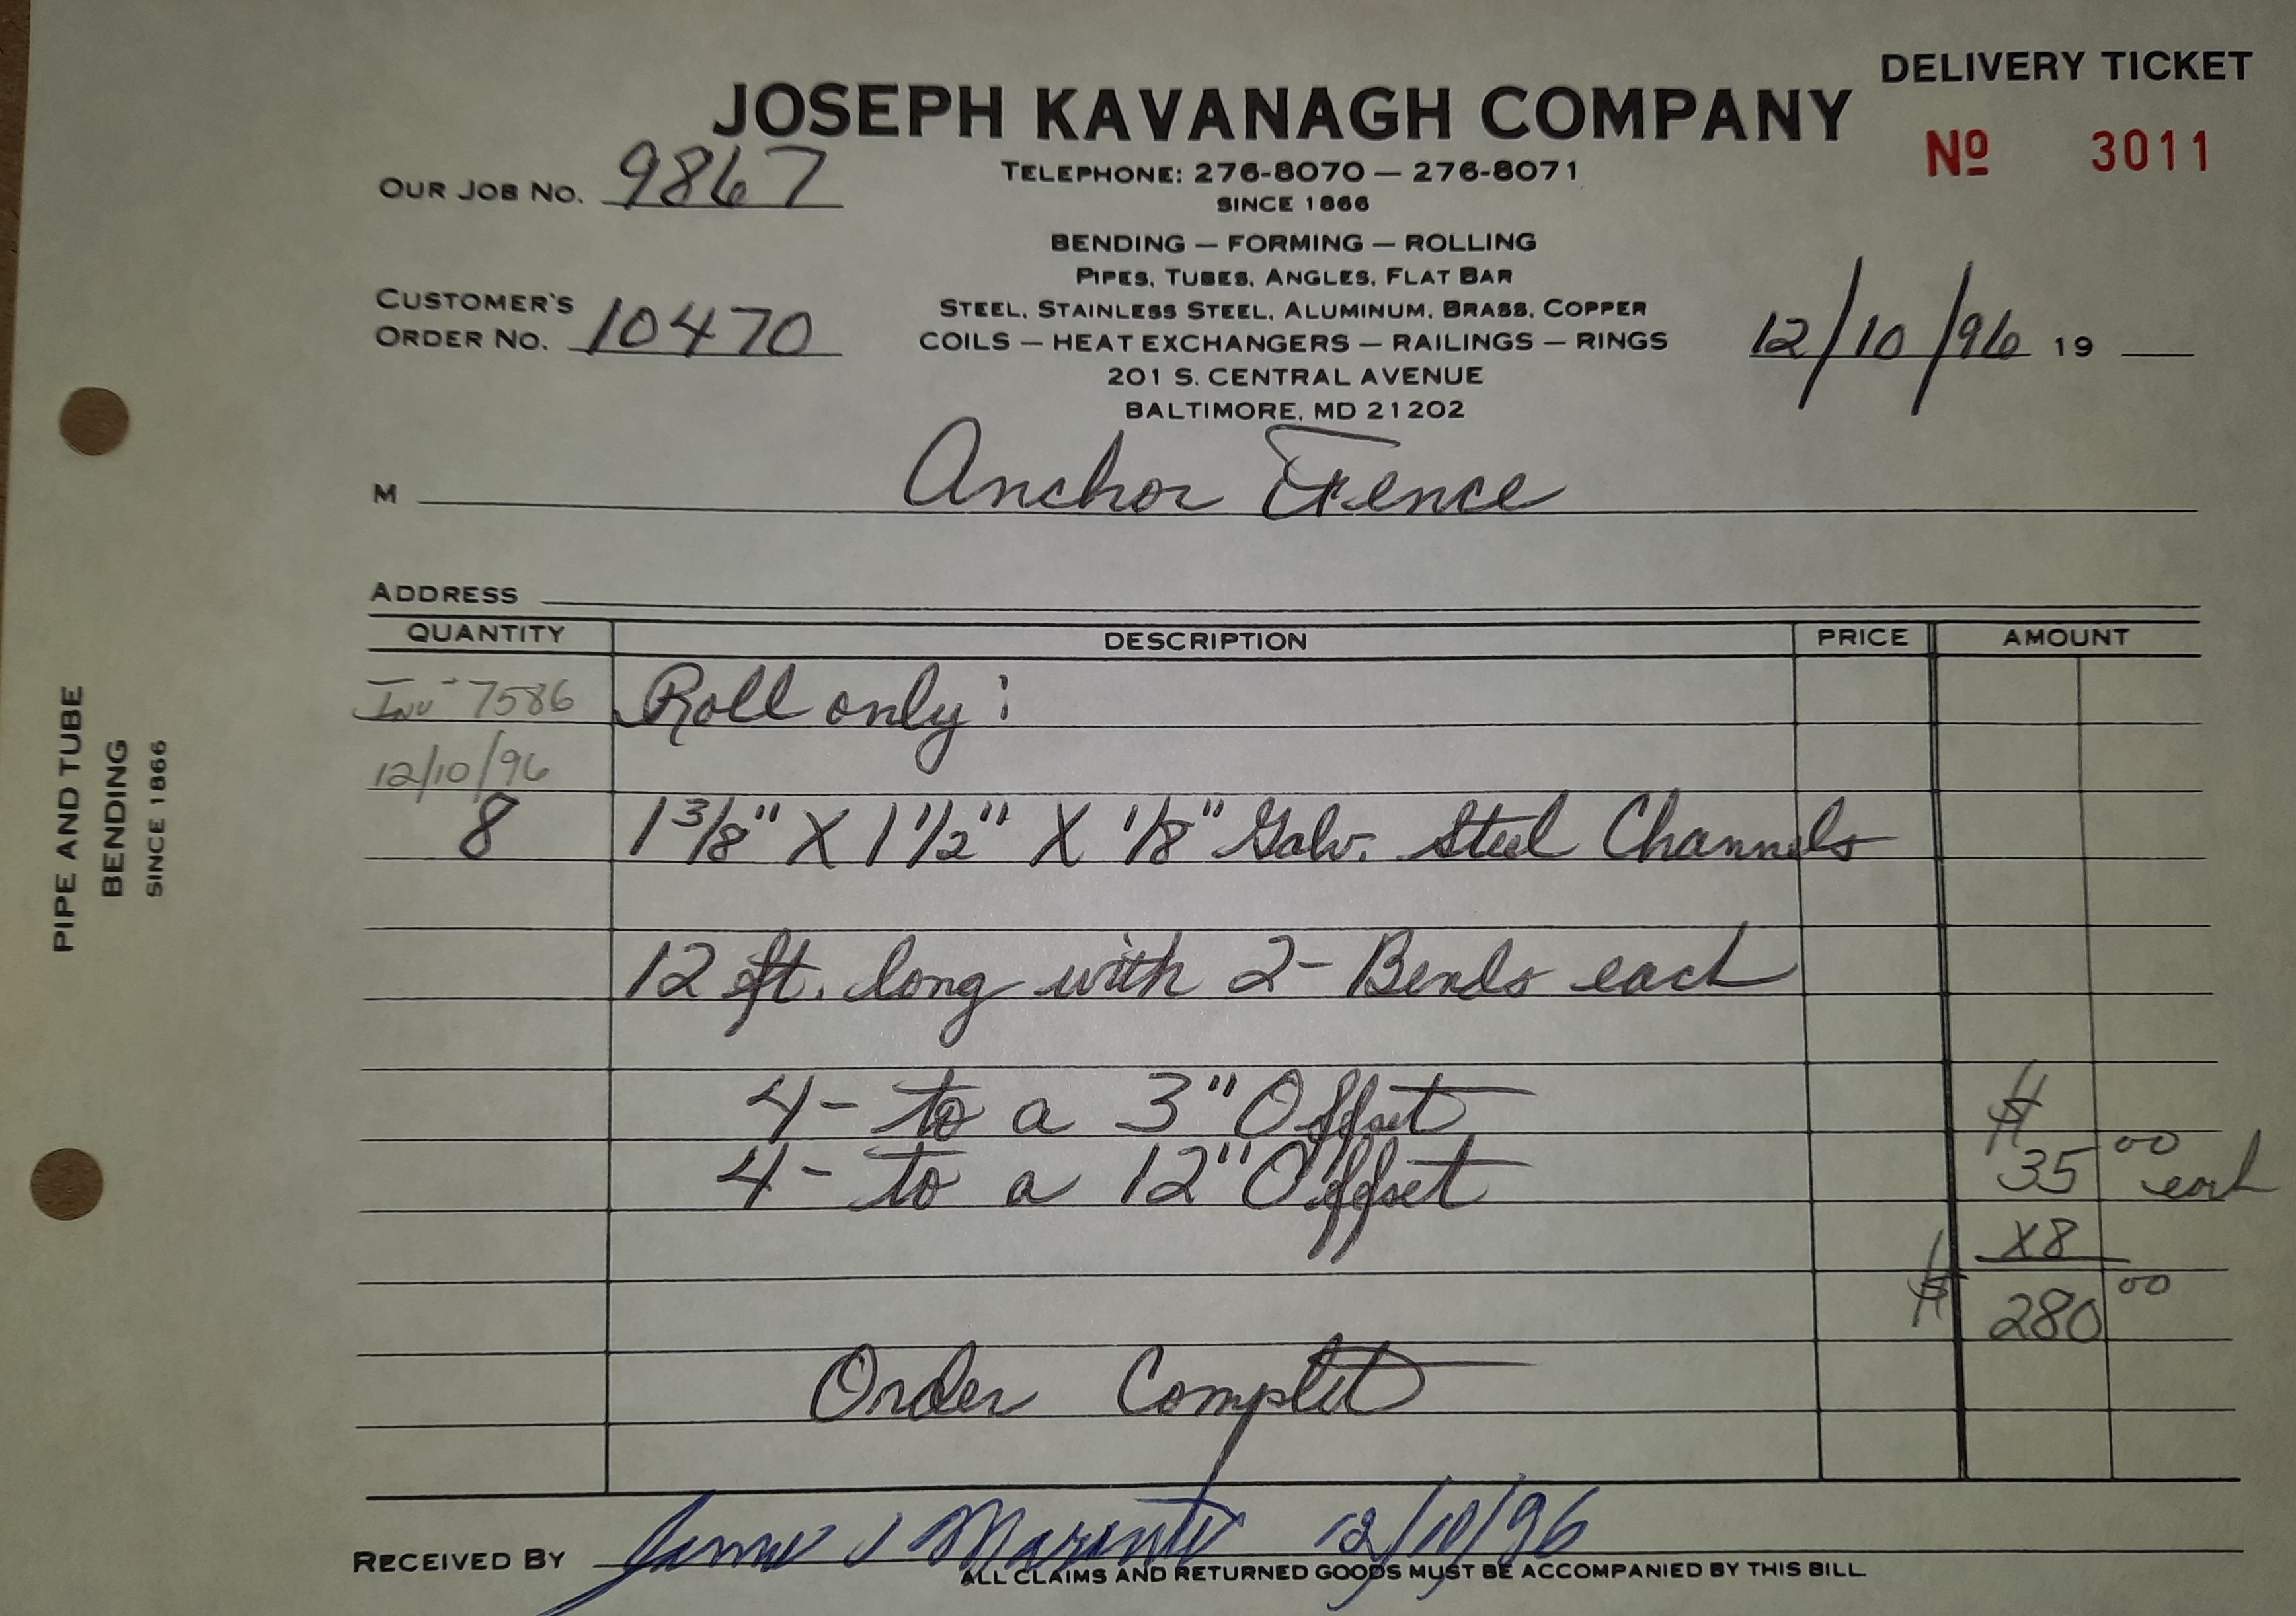 DELIVERY TICKET
JOSEPH KAVANAGH COMPANY
Nº 3011
OUR JOB NO. 9867
TELEPHONE: 276-8070 — 276-8071
SINCE 1866
BENDING — FORMING — ROLLING
PIPES, TUBES, ANGLES, FLAT BAR
CUSTOMER'S
ORDER NO. 10470
STEEL, STAINLESS STEEL, ALUMINUM, BRASS, COPPER
COILS — HEAT EXCHANGERS — RAILINGS — RINGS
12/10/96 19
201 S. CENTRAL AVENUE
BALTIMORE, MD 21202
M Anchor Fence
ADDRESS
QUANTITY DESCRIPTION PRICE AMOUNT
Inv 7586 Roll only:
12/10/96
8 1 3/8" X 1 1/2" X 1/8" Galv. Steel Channels
12 ft. long with 2- Bends each
4- to a 3" Offset
$
4- to a 12" Offset 35 00 each
X8
$ 280 00
Order Complet
RECEIVED BY 12/10/96
ALL CLAIMS AND RETURNED GOODS MUST BE ACCOMPANIED BY THIS BILL
PIPE AND TUBE
BENDING
SINCE 1866